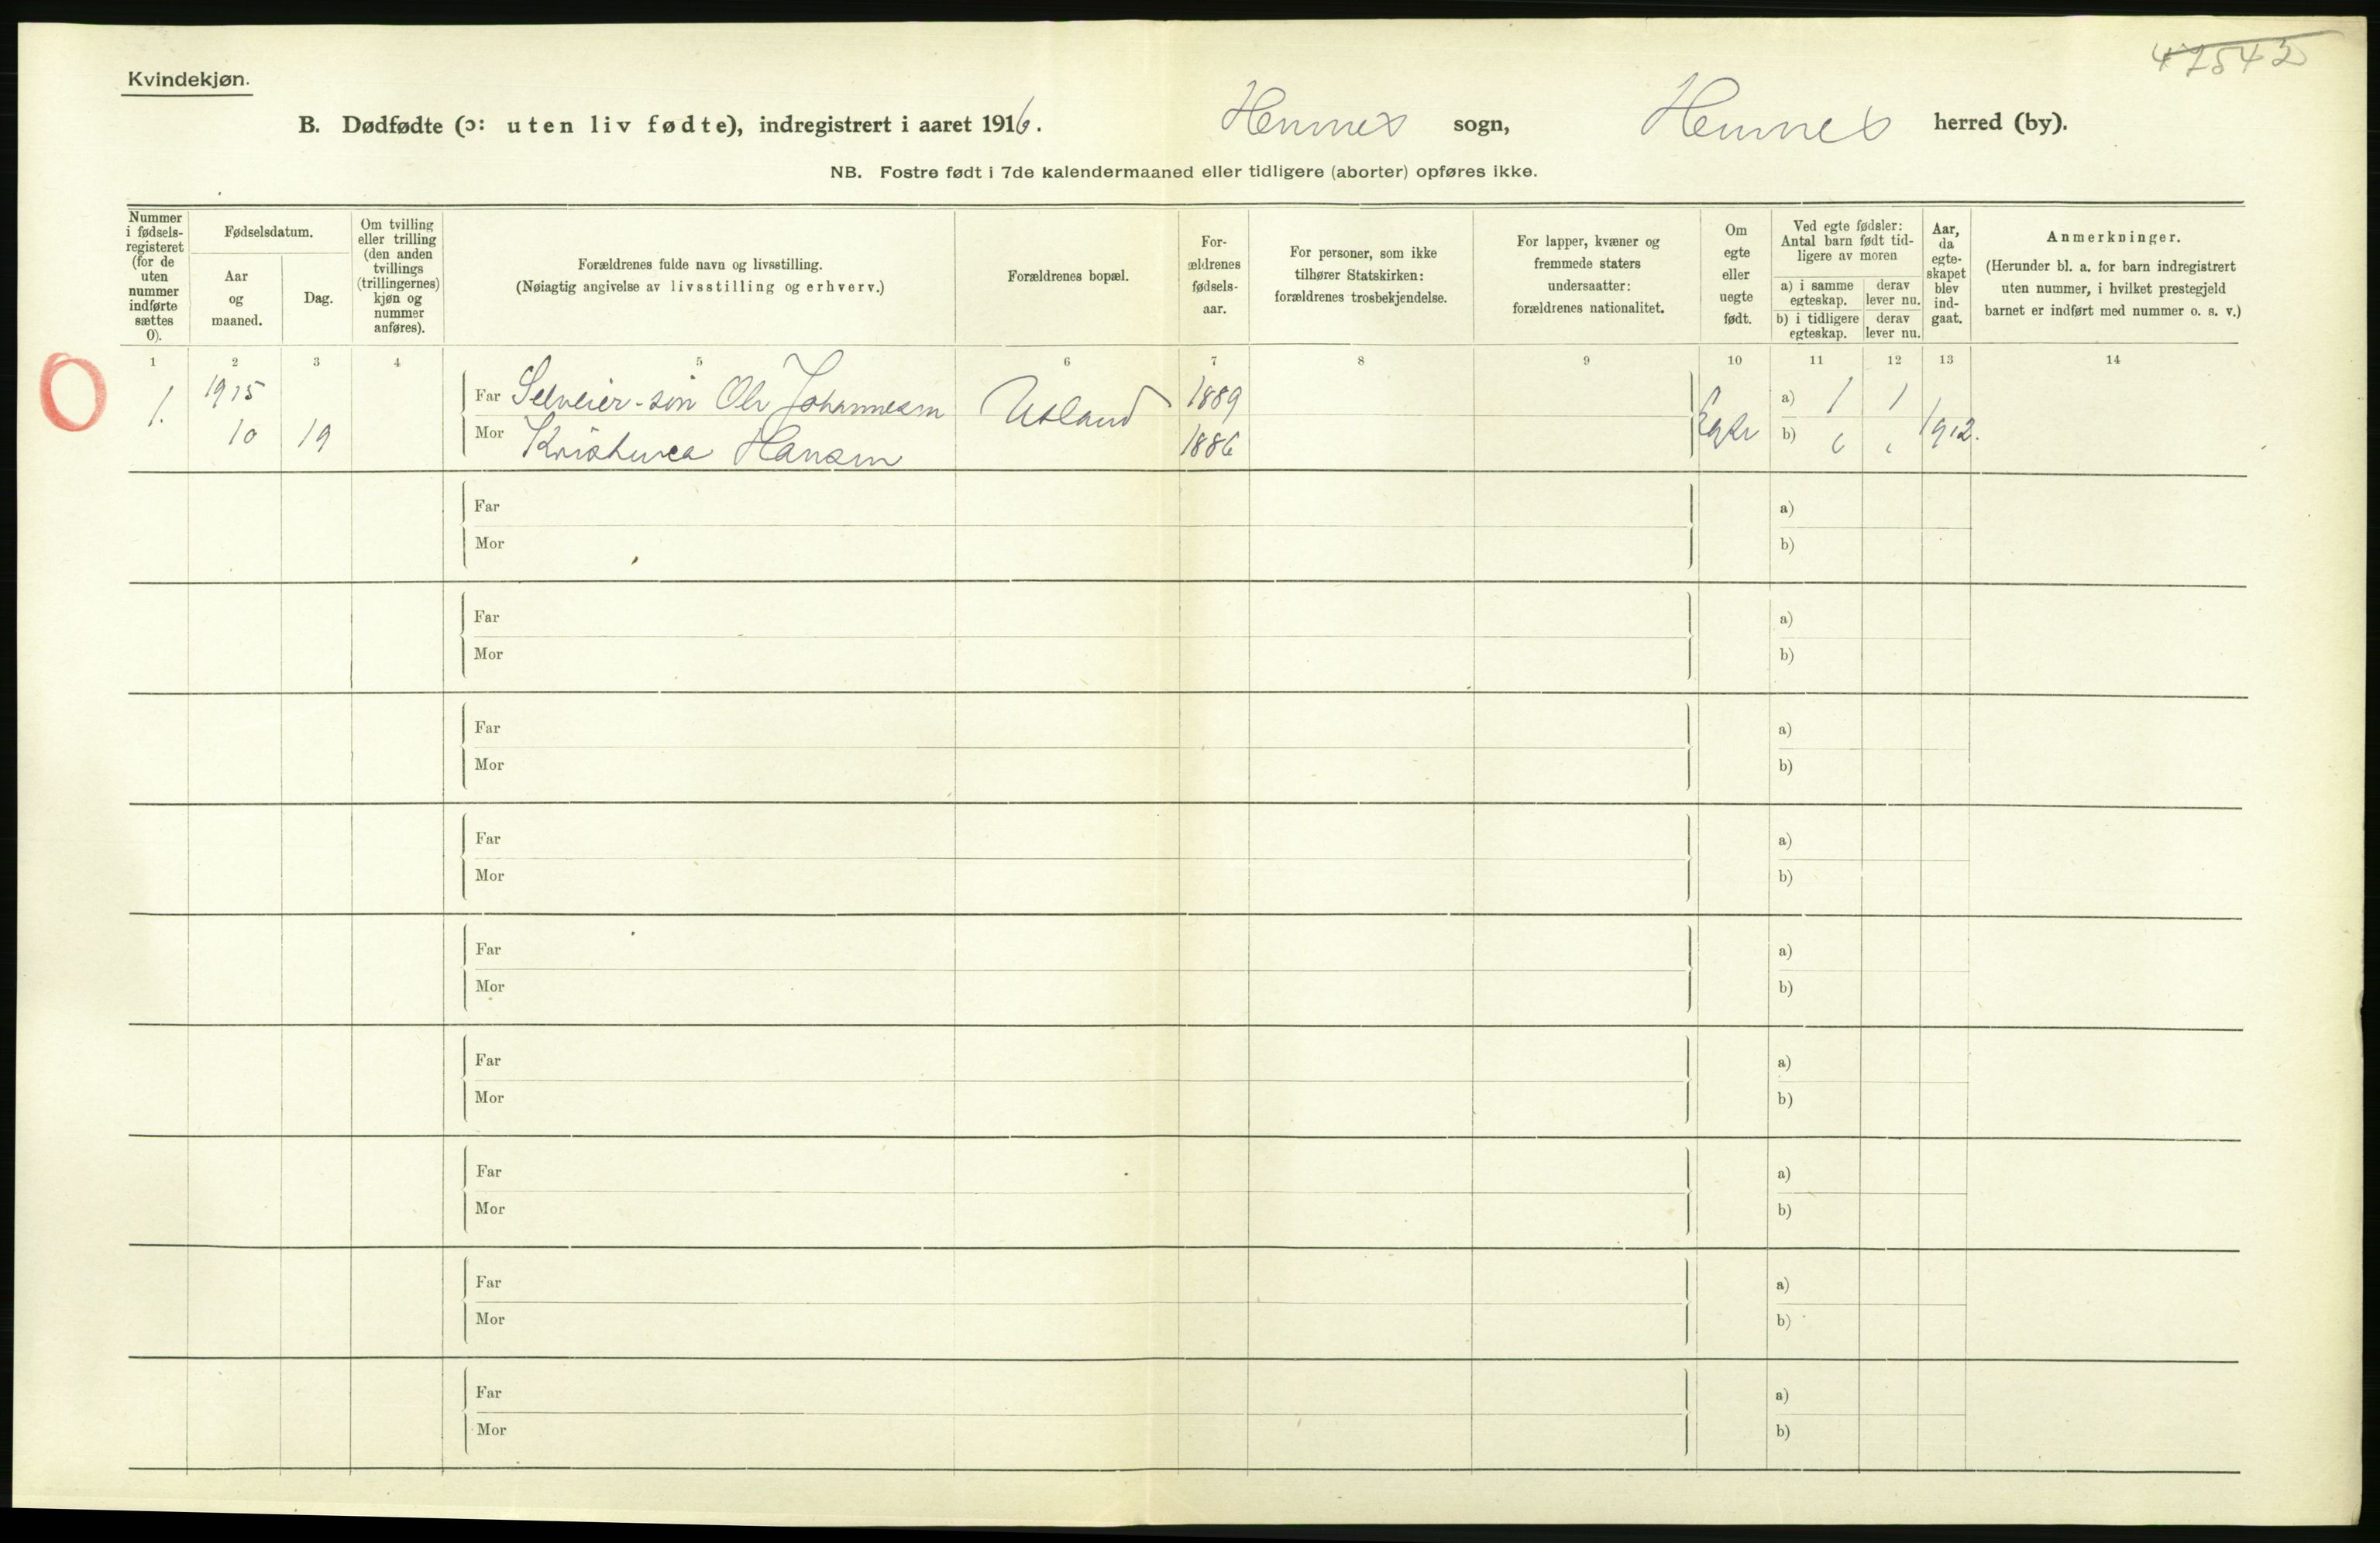 47542
Kvindekjøn.
B. Dødfødte (ɔ: uten liv fødte), indregistrert i aaret 1916. Hemnes sogn, Hemnes herred (by).
NB. Fostre født i 7de kalendermaaned eller tidligere (aborter) opføres ikke.
Nummer i fødsels-registeret (for de uten nummer indførte sættes 0).
Fødselsdatum.
Aar og maaned.
Dag.
Om tvilling eller trilling (den anden tvillings (trillingernes) kjøn og nummer anføres).
Forældrenes fulde navn og livsstilling.
(Nøiagtig angivelse av livsstilling og erhverv.)
Forældrenes bopæl.
For-ældrenes fødsels-aar.
For personer, som ikke tilhører Statskirken: forældrenes trosbekjendelse.
For lapper, kvæner og fremmede staters undersaatter: forældrenes nationalitet.
Om egte eller uegte født.
Ved egte fødsler: Antal barn født tid-ligere av moren
a) i samme egteskap.
derav lever nu.
b) i tidligere egteskap.
derav lever nu.
Aar, da egte-skapet blev ind-gaat.
Anmerkninger.
(Herunder bl. a. for barn indregistrert uten nummer, i hvilket prestegjeld barnet er indført med nummer o. s. v.)
1 2 3 4 5 6 7 8 9 10 11 12 13 14
1. 1915 Far Selveier-søn Ole Johannesen Utland 1889 Egte a) 1 1 1912.
10 19 Mor Kristinea Hansen 1886 b) " "
Far a)
Mor b)
Far a)
Mor b)
Far a)
Mor b)
Far a)
Mor b)
Far a)
Mor b)
Far a)
Mor b)
Far a)
Mor b)
Far a)
Mor b)
Far a)
Mor b)